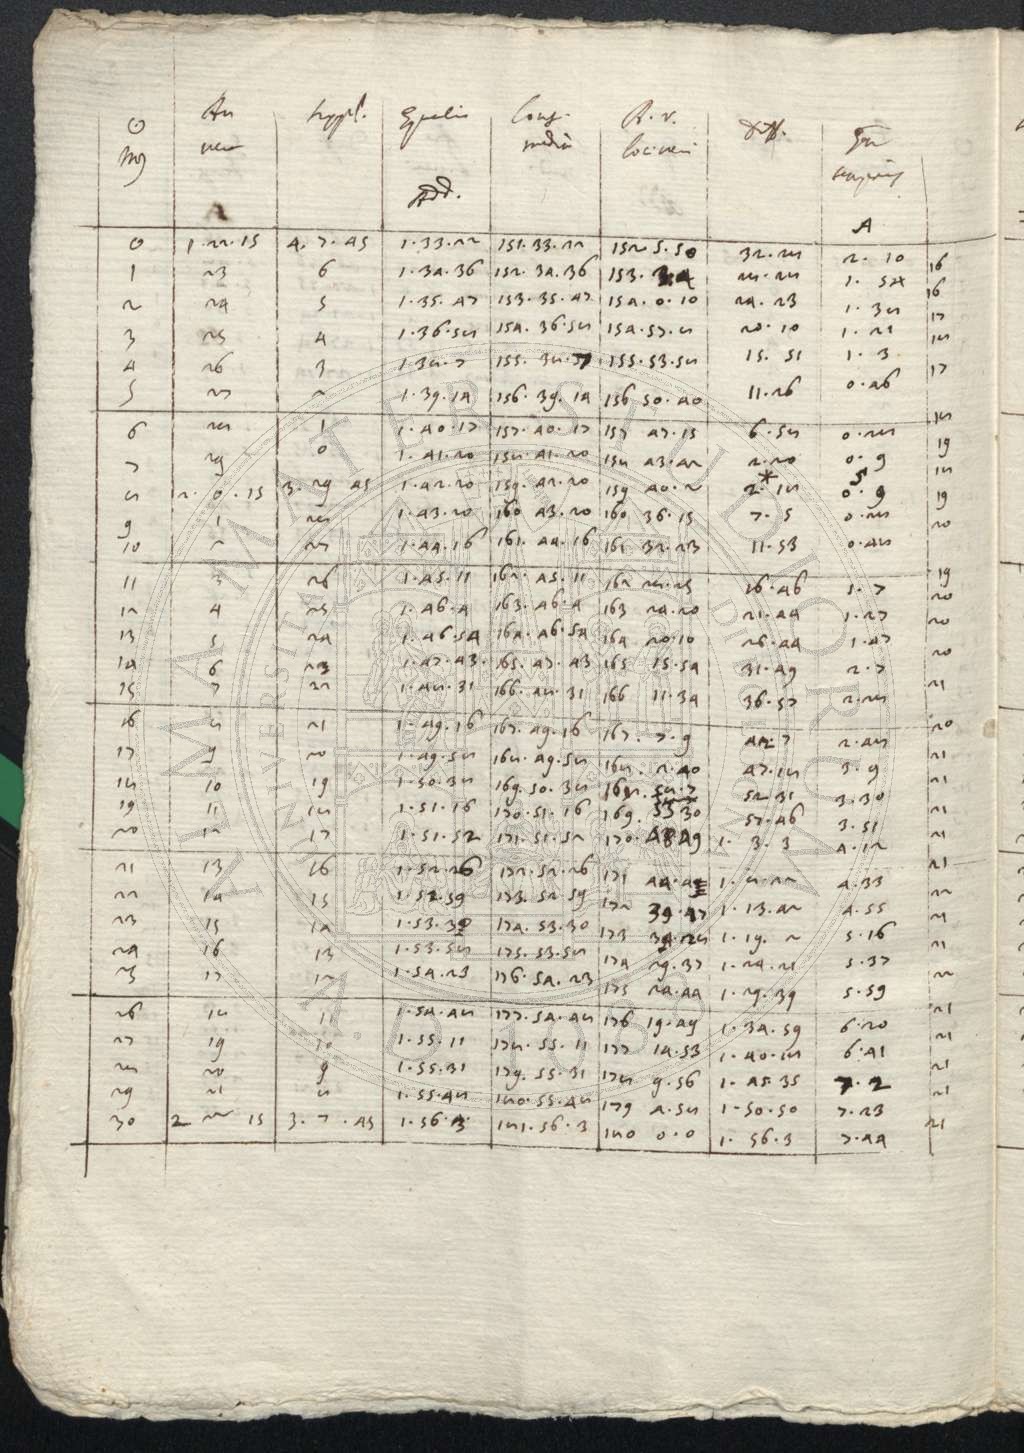 ☉ An suppl. Equatio Long. A. v. Diff.
♍ vera media loci veri
Add. A
0 1.22.15 4.7.45 1.33.22 151.33.22 152 5.50 32.28 2.10
16
1 23 6 1.34.36 152.34.36 153. 3 4 28.28 1.54
16
2 24 5 1.35.47 153.35.47 154.0.10 24.23 1.38
17
3 25 4 1.36.58 154.36.58 154.57.8 20.10 1.21
18
4 26 3 1.38.7 155.38.7 155.53.58 15.51 1.3
17
5 27 2 1.39.14 156.39.14 156 50.40 11.26 0.46
18
6 28 1 1.40.17 157.40.17 157 47.15 6.58 0.28
19
7 29 0 1.41.20 158.41.20 158 43.42 2.20 0.9
18
* S
8 2.0.15 3.29 45 1.42.20 159.42.20 159 40.2 2.18 0.9
19
9 1 28 1.43.20 160 43.20 160 36.15 7.5 0.28
20
10 2 27 1.44.16 161.44.16 161 32.23 11.53 0.48
19
11 3 26 1.45.11 162.45.11 162 28.25 16.46 1.7
20
12 4 25 1.46.4 163.46.4 163 24.20 21.44 1.27
20
13 5 24 1.46.54 164.46.54 164 20.10 26.44 1.47
20
14 6 23 1.47.43 165.47.43 165 15.54 31.49 2.7
21
15 7 22 1.48.31 166.48.31 166 11.34 36.57 2.28
20
16 8 21 1.49.16 167.49.16 167.7.9 42.7 2.48
21
17 9 20 1.49.58 168.49.58 168.2.40 47.18 3.9
21
18 10 19 1.50.38 169.50.38 168.58.7 52 31 3.30
21
19 11 18 1.51.16 170.51.16 169.53 30 57.46 3.51
21
20 12 17 1.51.52 171.51.52 170.48 49 1.3.3 4.12
21
21 13 16 1.52.26 172.52.26 171 44.4 1.8.22 4.33
22
22 14 15 1.52.59 173.52.59 172 39.17 1.13.42 4.55
21
23 15 14 1.53.30 174.53.30 173 34.28 1.19.2 5.16
21
24 16 13 1.53.58 175.53.58 174 29.37 1.24.21 5.37
22
25 17 12 1.54.23 176.54.23 175 24.44 1.29.39 5.59
21
26 18 11 1.54.48 177.54.48 176 19.49 1.34.59 6.20
21
27 19 10 1.55.11 178.55.11 177 14.53 1.40.18 6.41
21
28 20 9 1.55.31 179.55.31 178 9.56 1.45.35 7.2
21
29 21 8 1.55.48 180.55.48 179 4.58 1.50.50 7.23
21
30 2 22 15 3.7.45 1.56.3 181.56.3 180 0.0 1.56.3 7.44